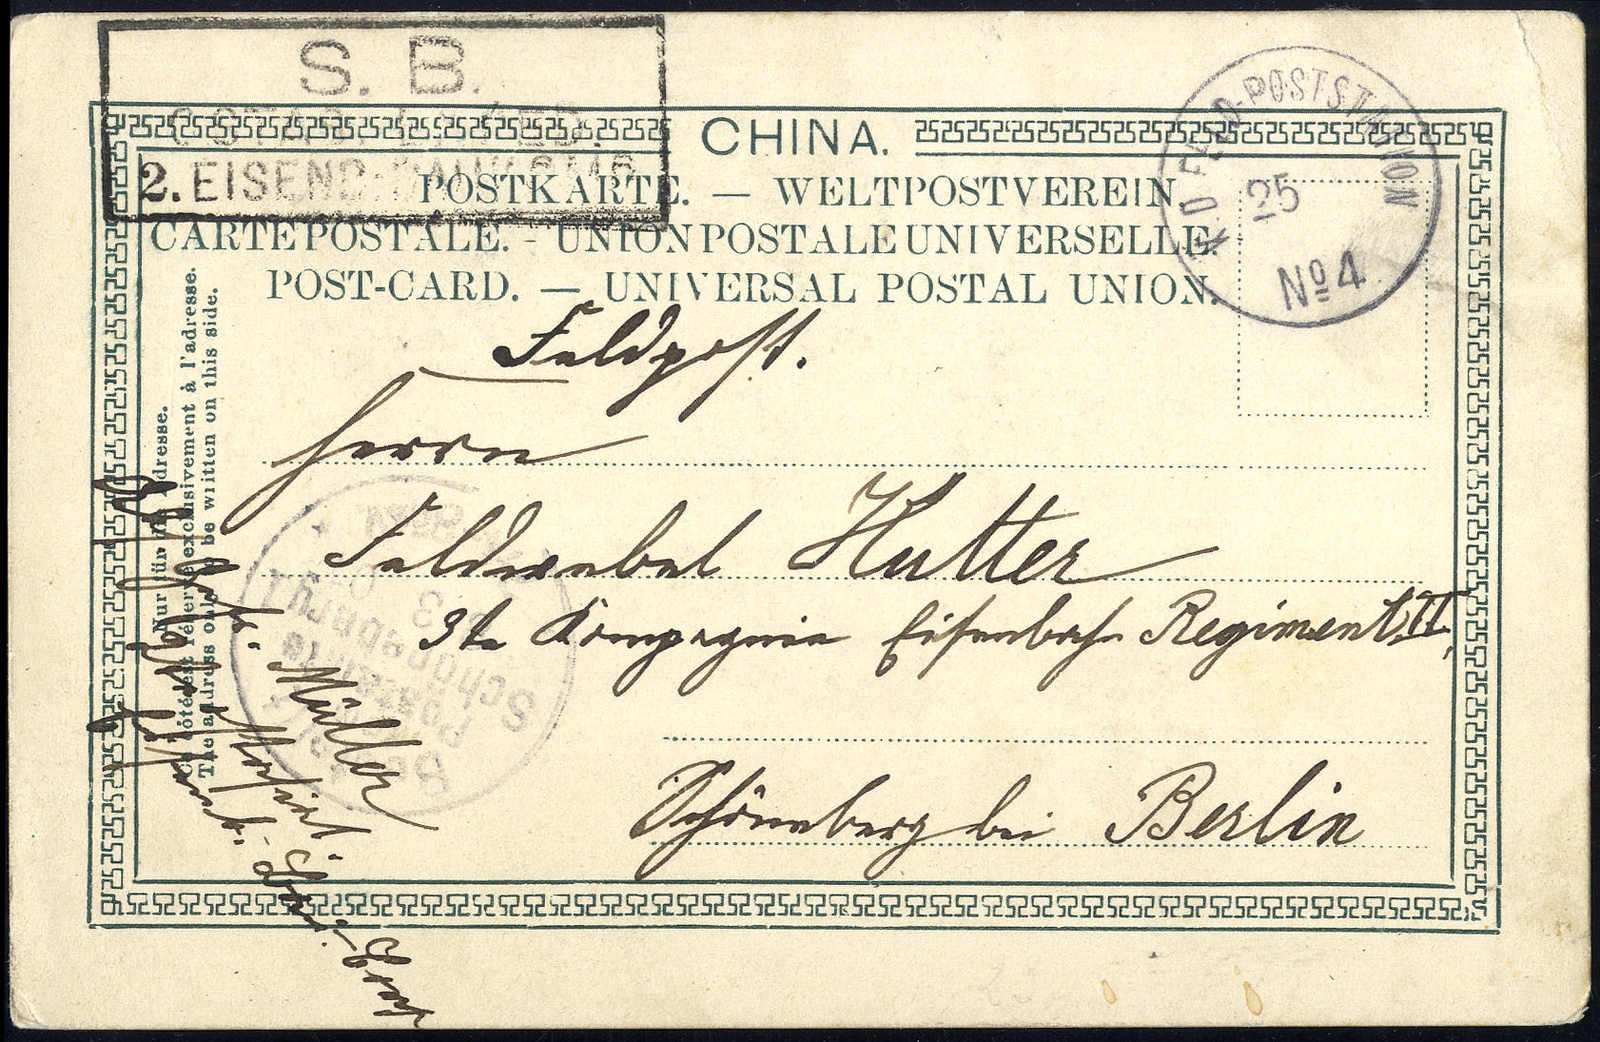 S. B.
OSTAS. EXPED.
2. EISENB. BAU KOMP.
CHINA.
POSTKARTE. — WELTPOSTVEREIN.
CARTE POSTALE. - UNION POSTALE UNIVERSELLE.
POST-CARD. — UNIVERSAL POSTAL UNION.
K.D FELD-POSTSTATION
25
No 4
Nur für die Adresse.
Ce côté est réservé exclusivement à l'adresse.
The address only to be written on this side.
Feldpost.
Herrn
Feldwebel Hutter
3te Kompagnie Eisenbahn Regiment II,
Schöneberg bei Berlin
Schöneberg
Müller